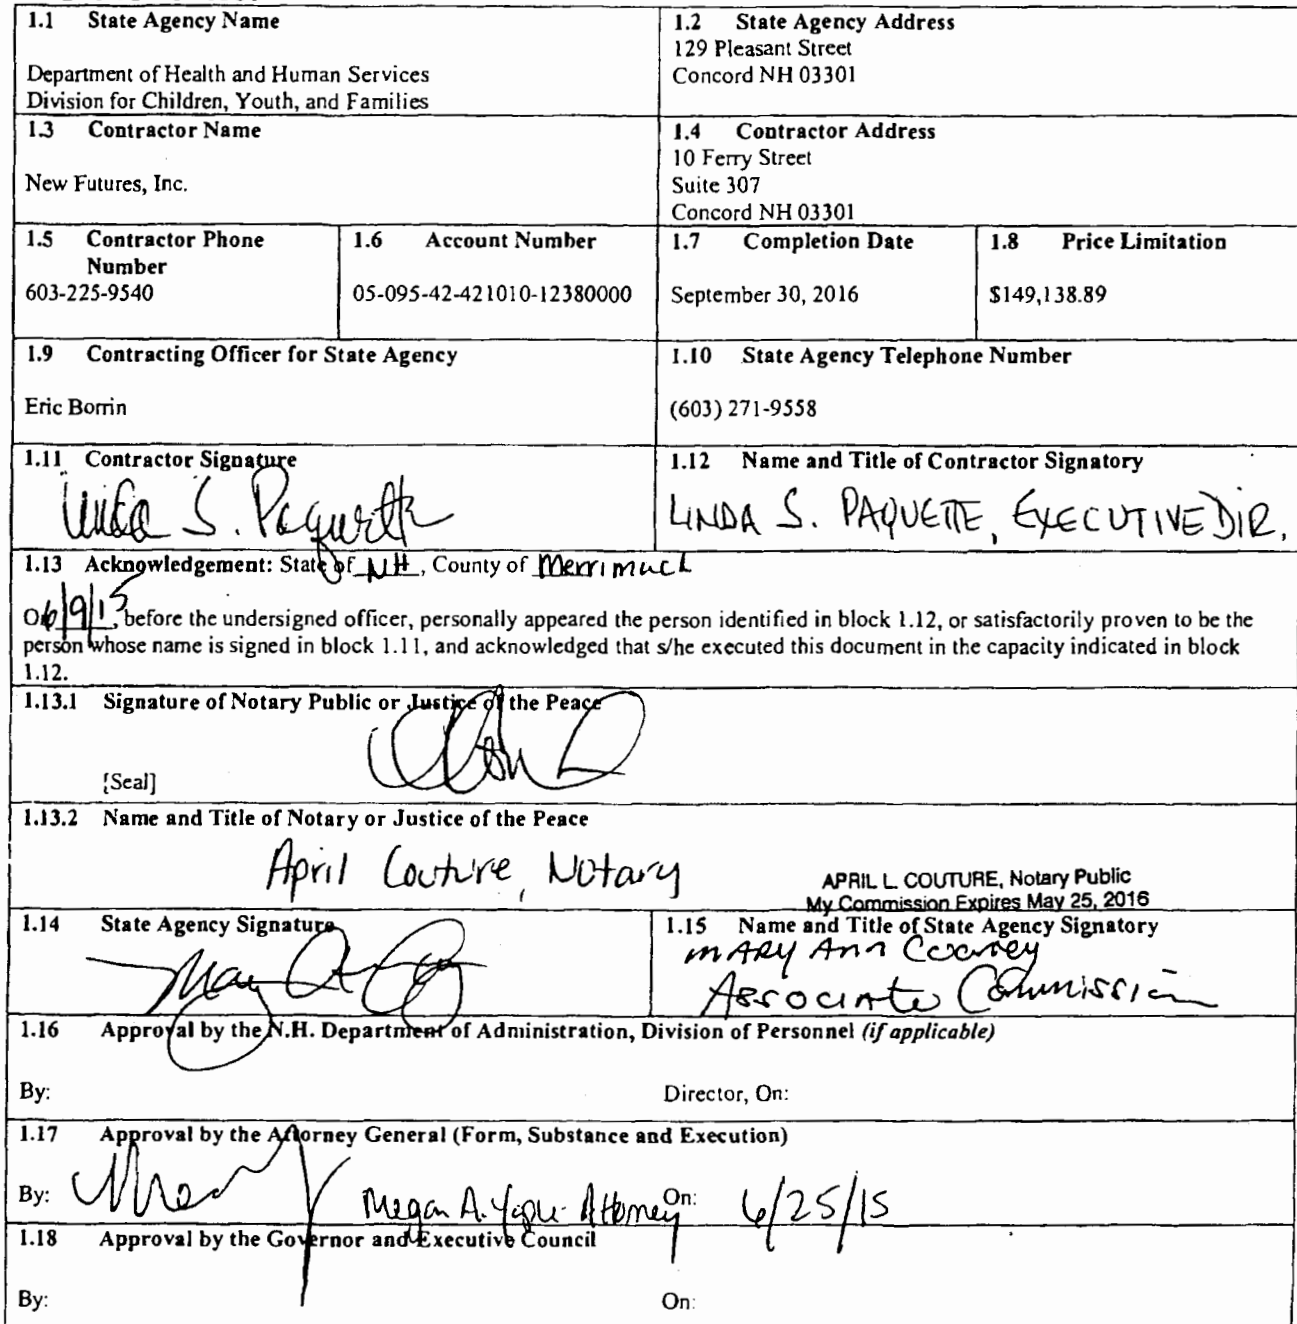 1.1 State Agency Name
Department of Health and Human Services
Division for Children, Youth, and Families
1.2 State Agency Address
129 Pleasant Street
Concord NH 03301
1.3 Contractor Name
New Futures, Inc.
1.4 Contractor Address
10 Ferry Street
Suite 307
Concord NH 03301
1.5 Contractor Phone
Number
603-225-9540
1.6 Account Number
05-095-42-421010-12380000
1.7 Completion Date
September 30, 2016
1.8 Price Limitation
$149,138.89
1.9 Contracting Officer for State Agency
Eric Borrin
1.10 State Agency Telephone Number
(603) 271-9558
1.11 Contractor Signature
Linda S. Paquette
1.12 Name and Title of Contractor Signatory
LINDA S. PAQUETTE, EXECUTIVE DIR.
1.13 Acknowledgement: State of NH, County of Merrimack
On 6/9/15, before the undersigned officer, personally appeared the person identified in block 1.12, or satisfactorily proven to be the
person whose name is signed in block 1.11, and acknowledged that s/he executed this document in the capacity indicated in block
1.12.
1.13.1 Signature of Notary Public or Justice of the Peace
[Seal]
1.13.2 Name and Title of Notary or Justice of the Peace
April Couture, Notary
APRIL L. COUTURE, Notary Public
My Commission Expires May 25, 2016
1.14 State Agency Signature
1.15 Name and Title of State Agency Signatory
Mary Ann Cooney
Associate Commission
1.16 Approval by the N.H. Department of Administration, Division of Personnel (if applicable)
By:
Director, On:
1.17 Approval by the Attorney General (Form, Substance and Execution)
By: Megan A. Attorney On: 6/25/15
1.18 Approval by the Governor and Executive Council
By:
On: